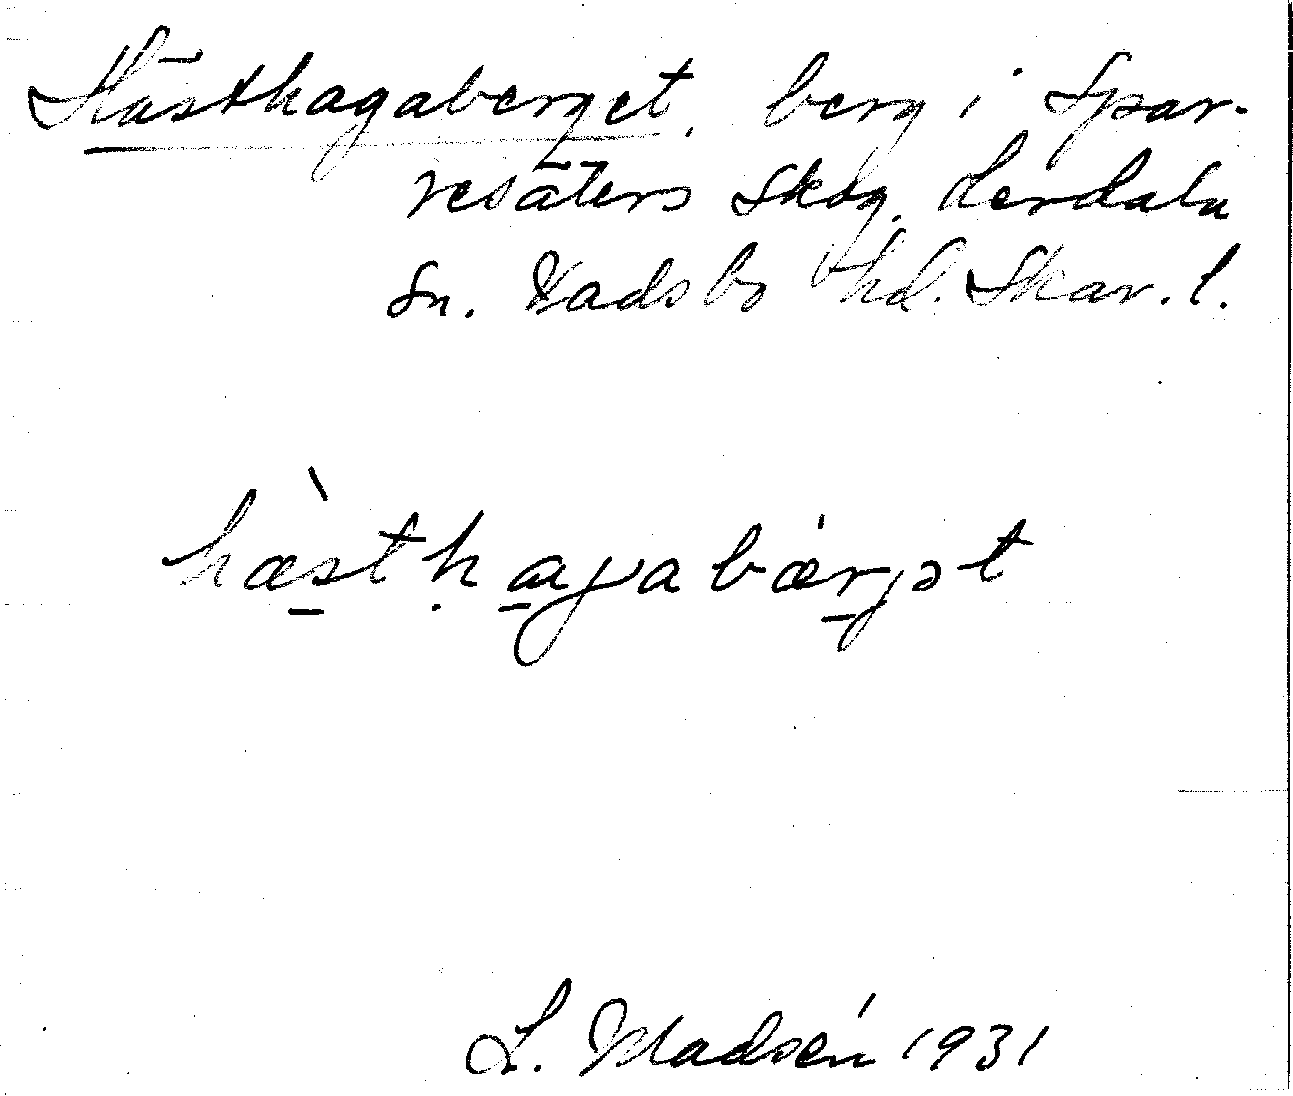 Hästhagaberget, berg i Spar-
resäters skog. Lerdala
sn. Vadsbo hd. Skar. l.
hæ̀sthagabǽrjət
L. Madsén 1931